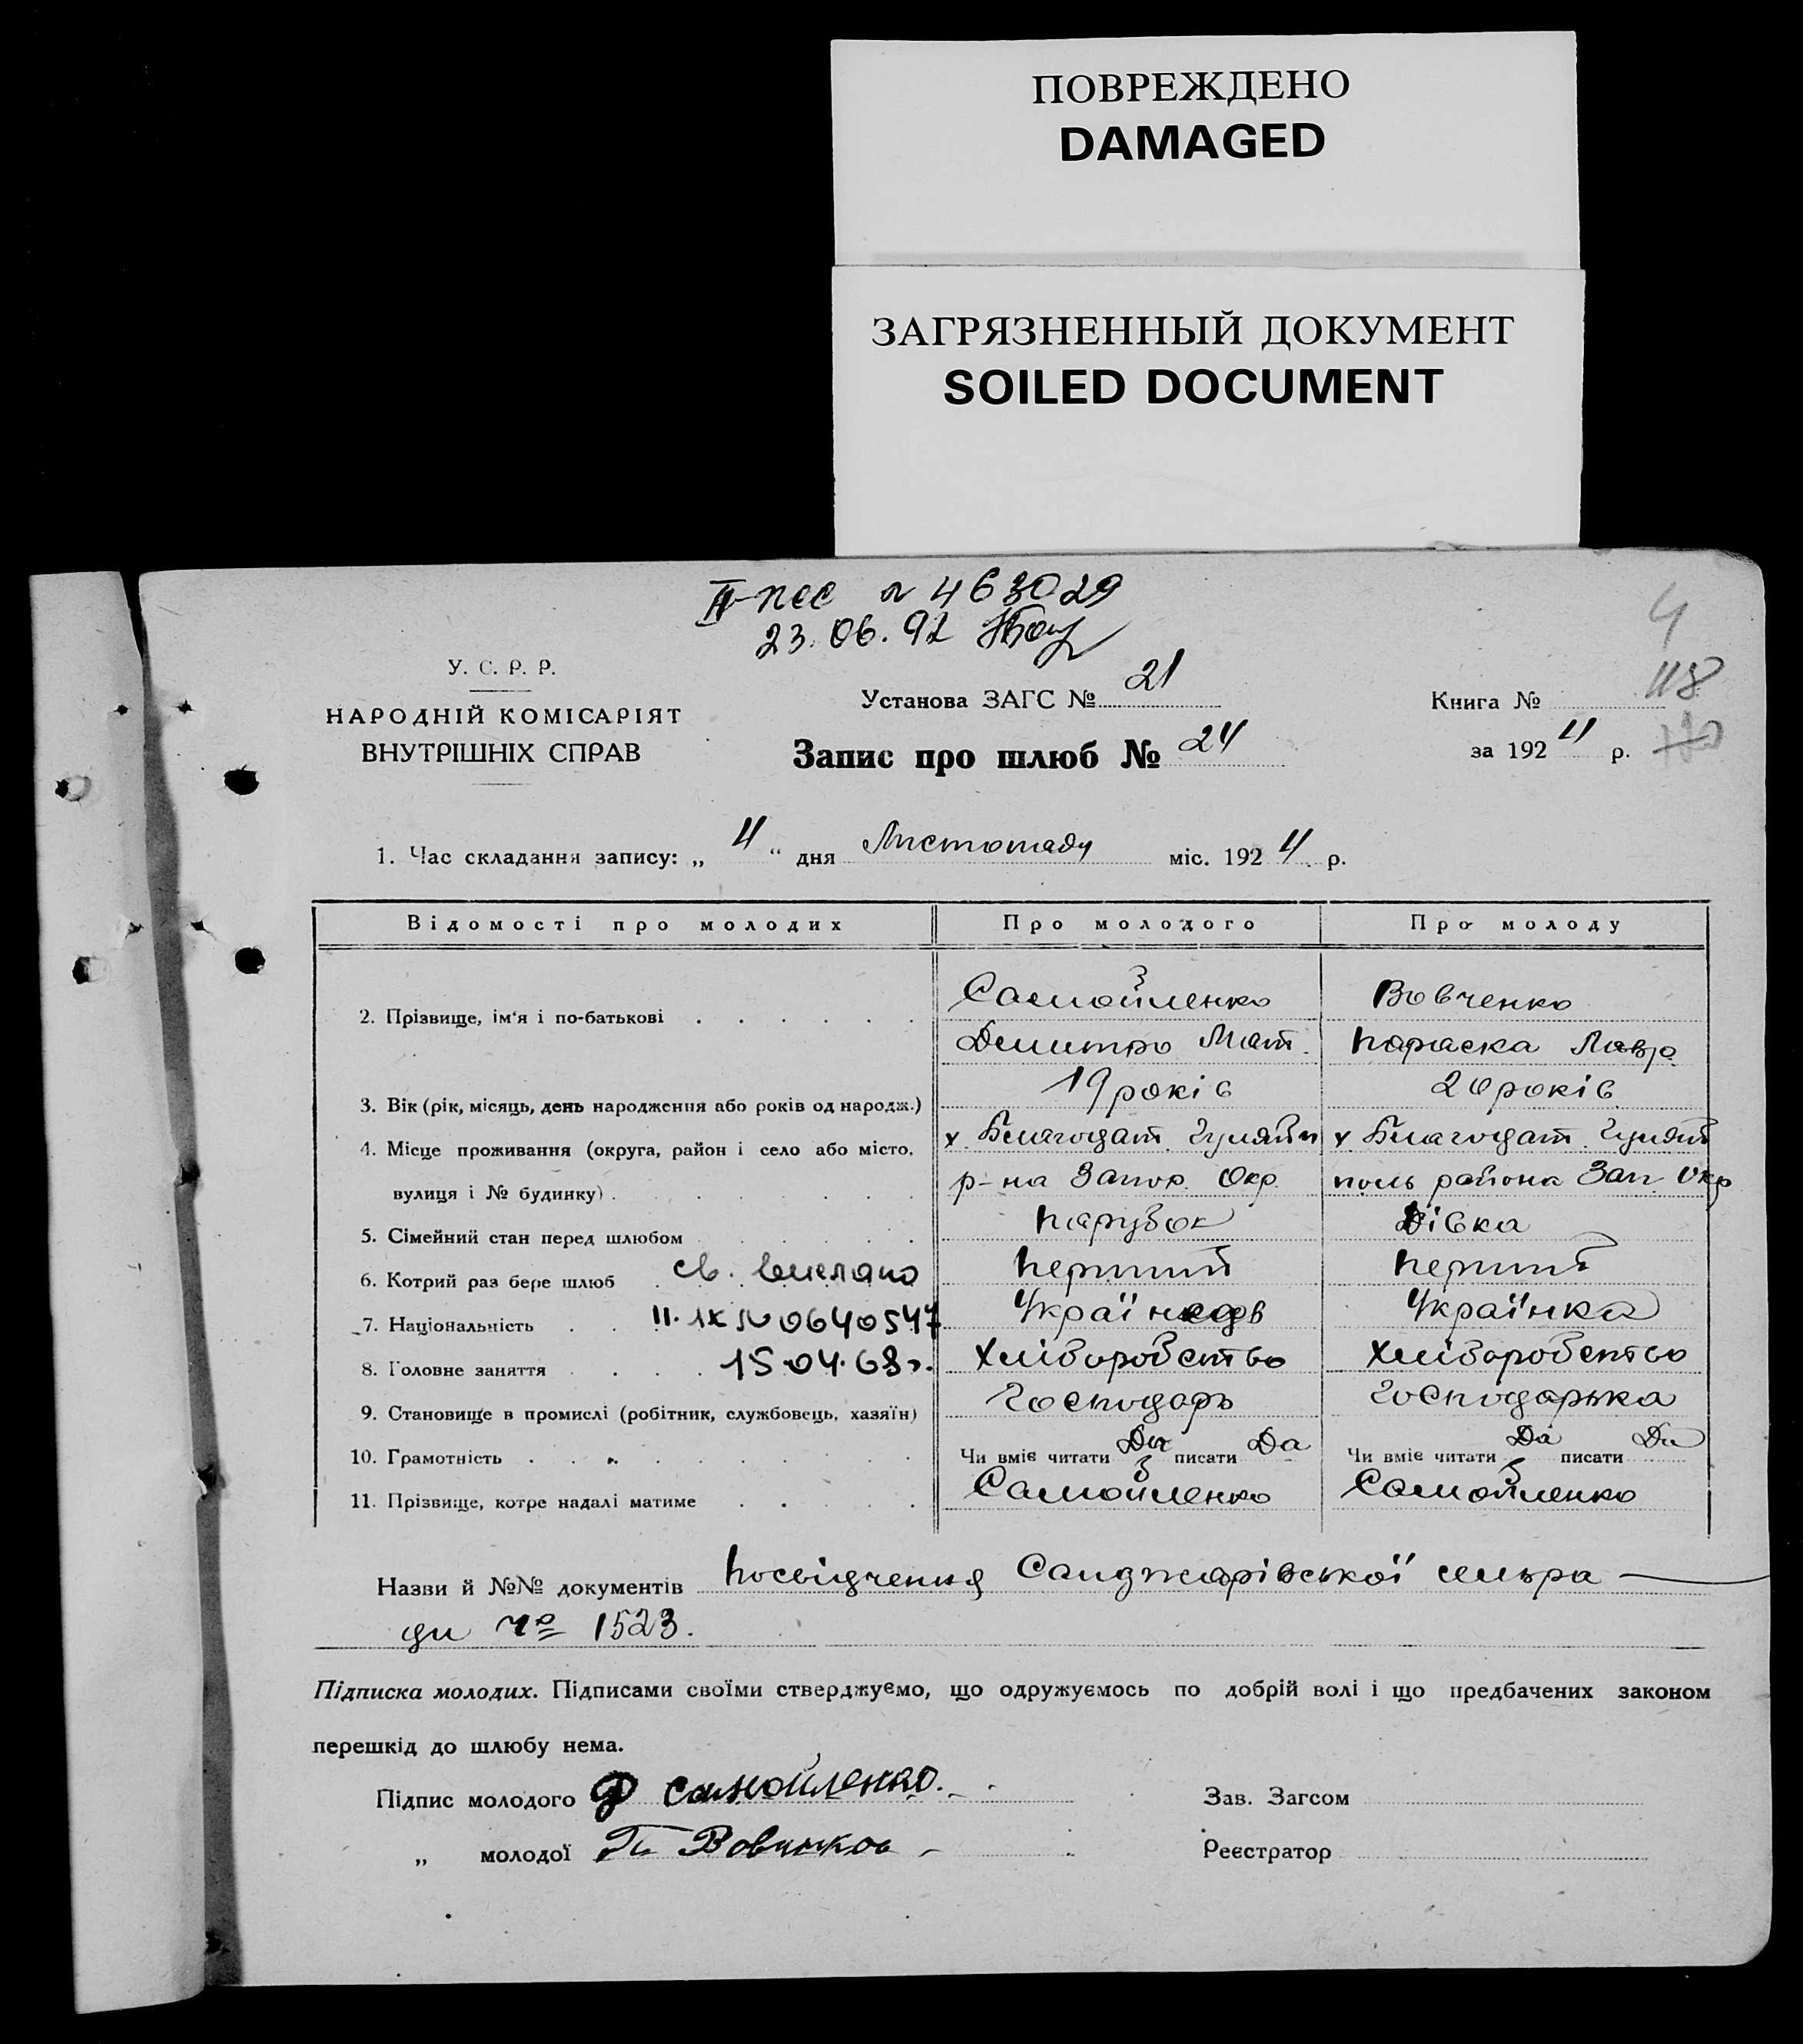 ПОВРЕЖДЕНО
DAMAGED
ЗАГРЯЗНЕННЫЙ ДОКУМЕНТ
SOILED DOCUMENT
4 63029
23.06.92
4
118
У. С. Р. Р.
НАРОДНІЙ КОМІСАРІЯТ
ВНУТРІШНІХ СПРАВ
Установа ЗАГС № 21
Запис про шлюб № 24
Книга №
за 1924 р.
1. Час складання запису: „ 4 “ дня Листопаду міс. 1924 р.
Відомості про молодих Про молодого Про молоду
2. Прізвище, ім‘я і по-батькові Самойленко Вовченко
Дмитро Мат. Параска Лавр.
3. Вік (рік, місяць, день народження або років од народж.) 19 років 20 років
4. Місце проживання (округа, район і село або місто, х. Благодат. Гуляйп х Благодат. Гуляй
вулиця і № будинку) р-на Запор. Окр. поль района Зап. Окр
5. Сімейний стан перед шлюбом Парубок Дівка
6. Котрий раз бере шлюб св. выслано Перший Перший
7. Національність II-ЖС № 0640547 Україн Українка
8. Головне заняття 15.04.68г. Хліборобство Хліборобство
9. Становище в промислі (робітник, службовець, хазяїн) Господарь Господарька
10. Грамотність Чи вміє читати Да писати Да Чи вміє читати Да писати Да
11. Прізвище, котре надалі матиме Самойленко Самойленко
Назви й №№ документів Посвідчення Санджарівської сельра
ди № 1523.
Підписка молодих. Підписами своїми стверджуємо, що одружуємось по добрій волі і що предбачених законом
перешкід до шлюбу нема.
Підпис молодого Д Самойленко.
Зав. Загсом
„ молодої П Вовченко
Реєстратор